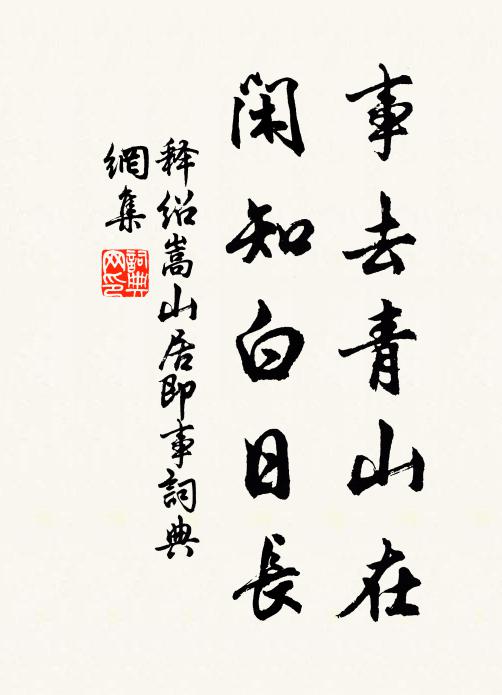 事去青山在
閑知白日長
释绍嵩山居即事詞典
網集
詞典网印